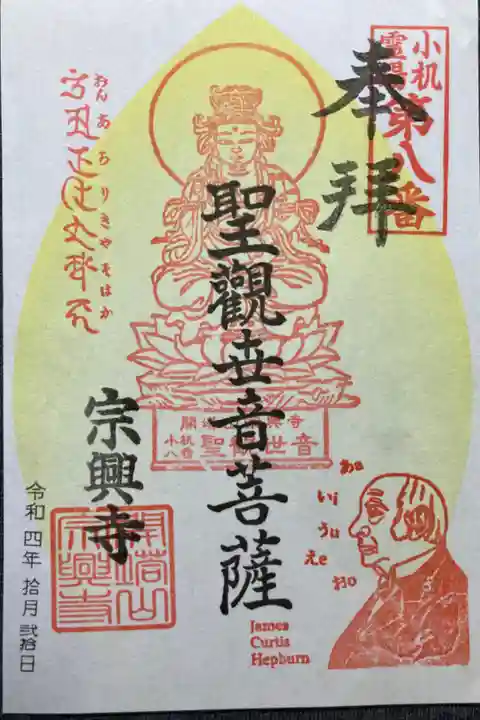 小机
霊場
第八番
奉拝
聖觀世音菩薩
おんあろりきやそはか
開塔山宗興寺
小机
八番
聖観世音
宗興寺
開塔山
宗興寺
令和四年 拾月 弐拾日
あa
いi
うu
えe
おo
James
Curtis
Hepburn